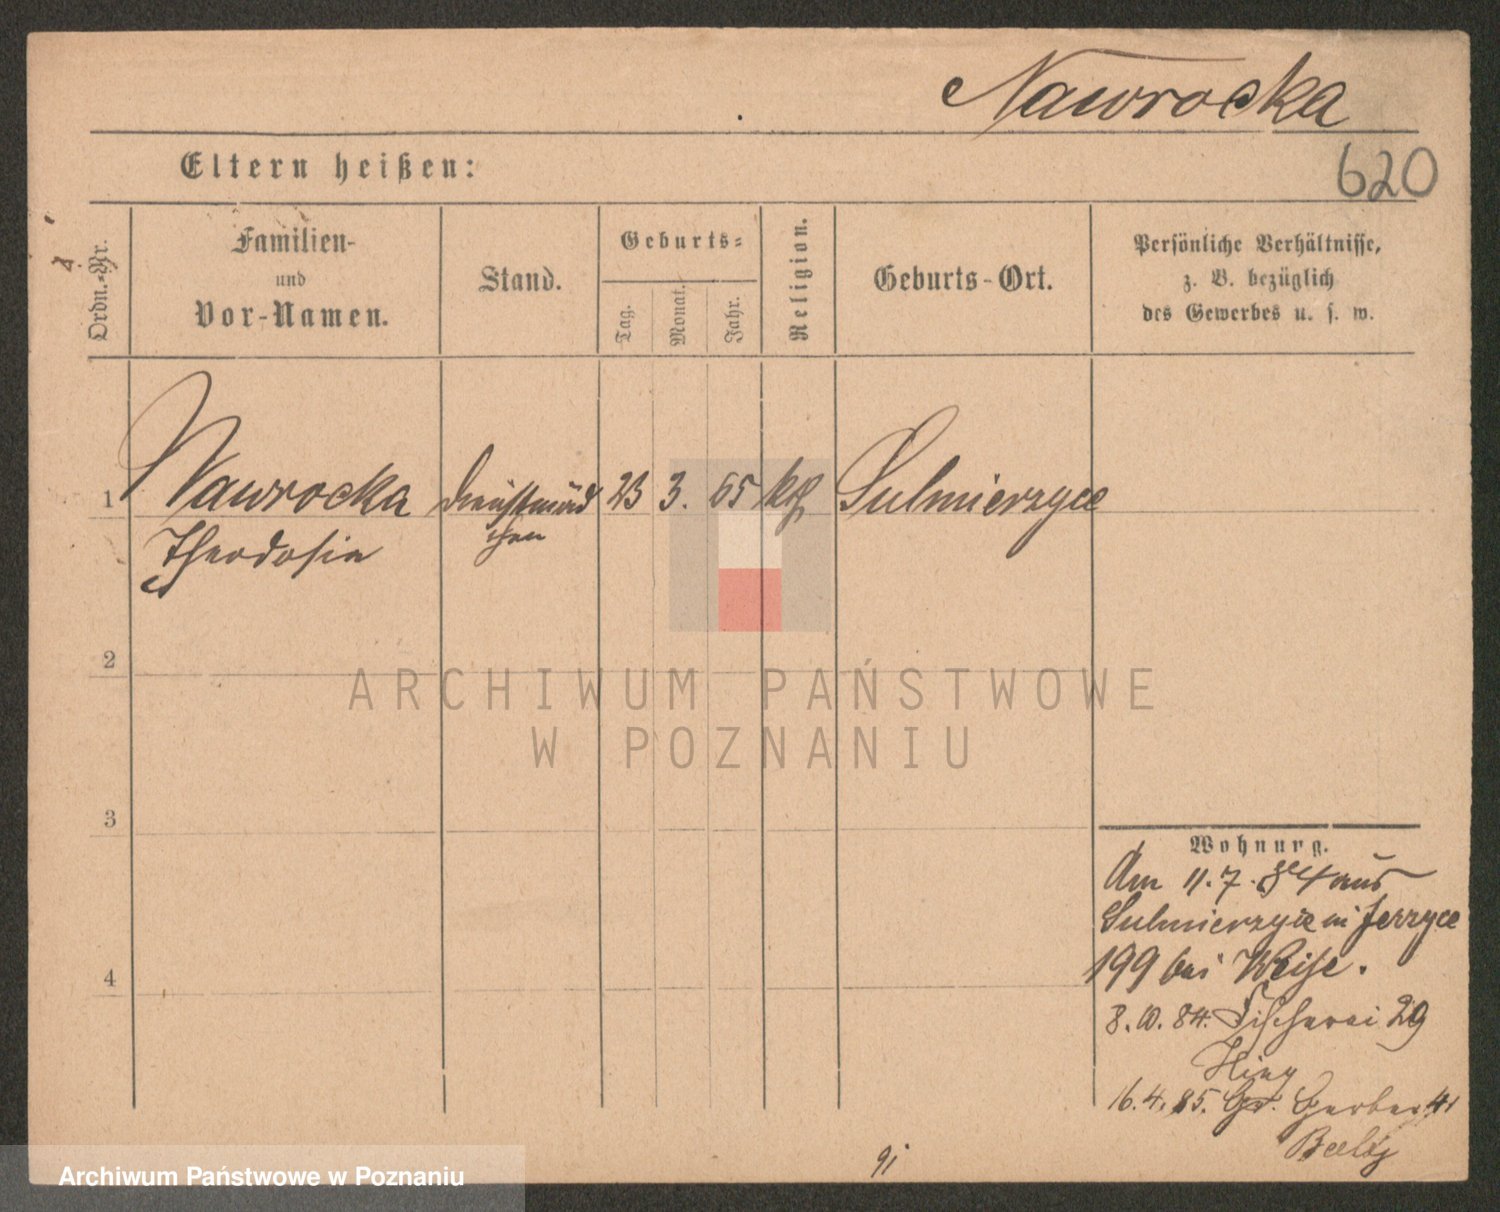 Nawrocka
620
Eltern heißen:
Ordn.-Nr.
Familien-
und
Vor-Namen.
Stand.
Geburts-
Tag.
Monat.
Jahr.
Religion.
Geburts-Ort.
Persönliche Verhältnisse,
z. B. bezüglich
des Gewerbes u. s. w.
1 Nawrocka Dienstmäd 23 3. 65 kth Sulmierzyce
Theodosia chen
2
3
4
Wohnung.
Am 11.7.84 aus
Sulmierzyce in Jerzyce
199 bei Weise.
8.10.84. Fischerei 29
16.4.85. Gr. Gerber 41
91
ARCHIWUM PAŃSTWOWE
W POZNANIU
Archiwum Państwowe w Poznaniu